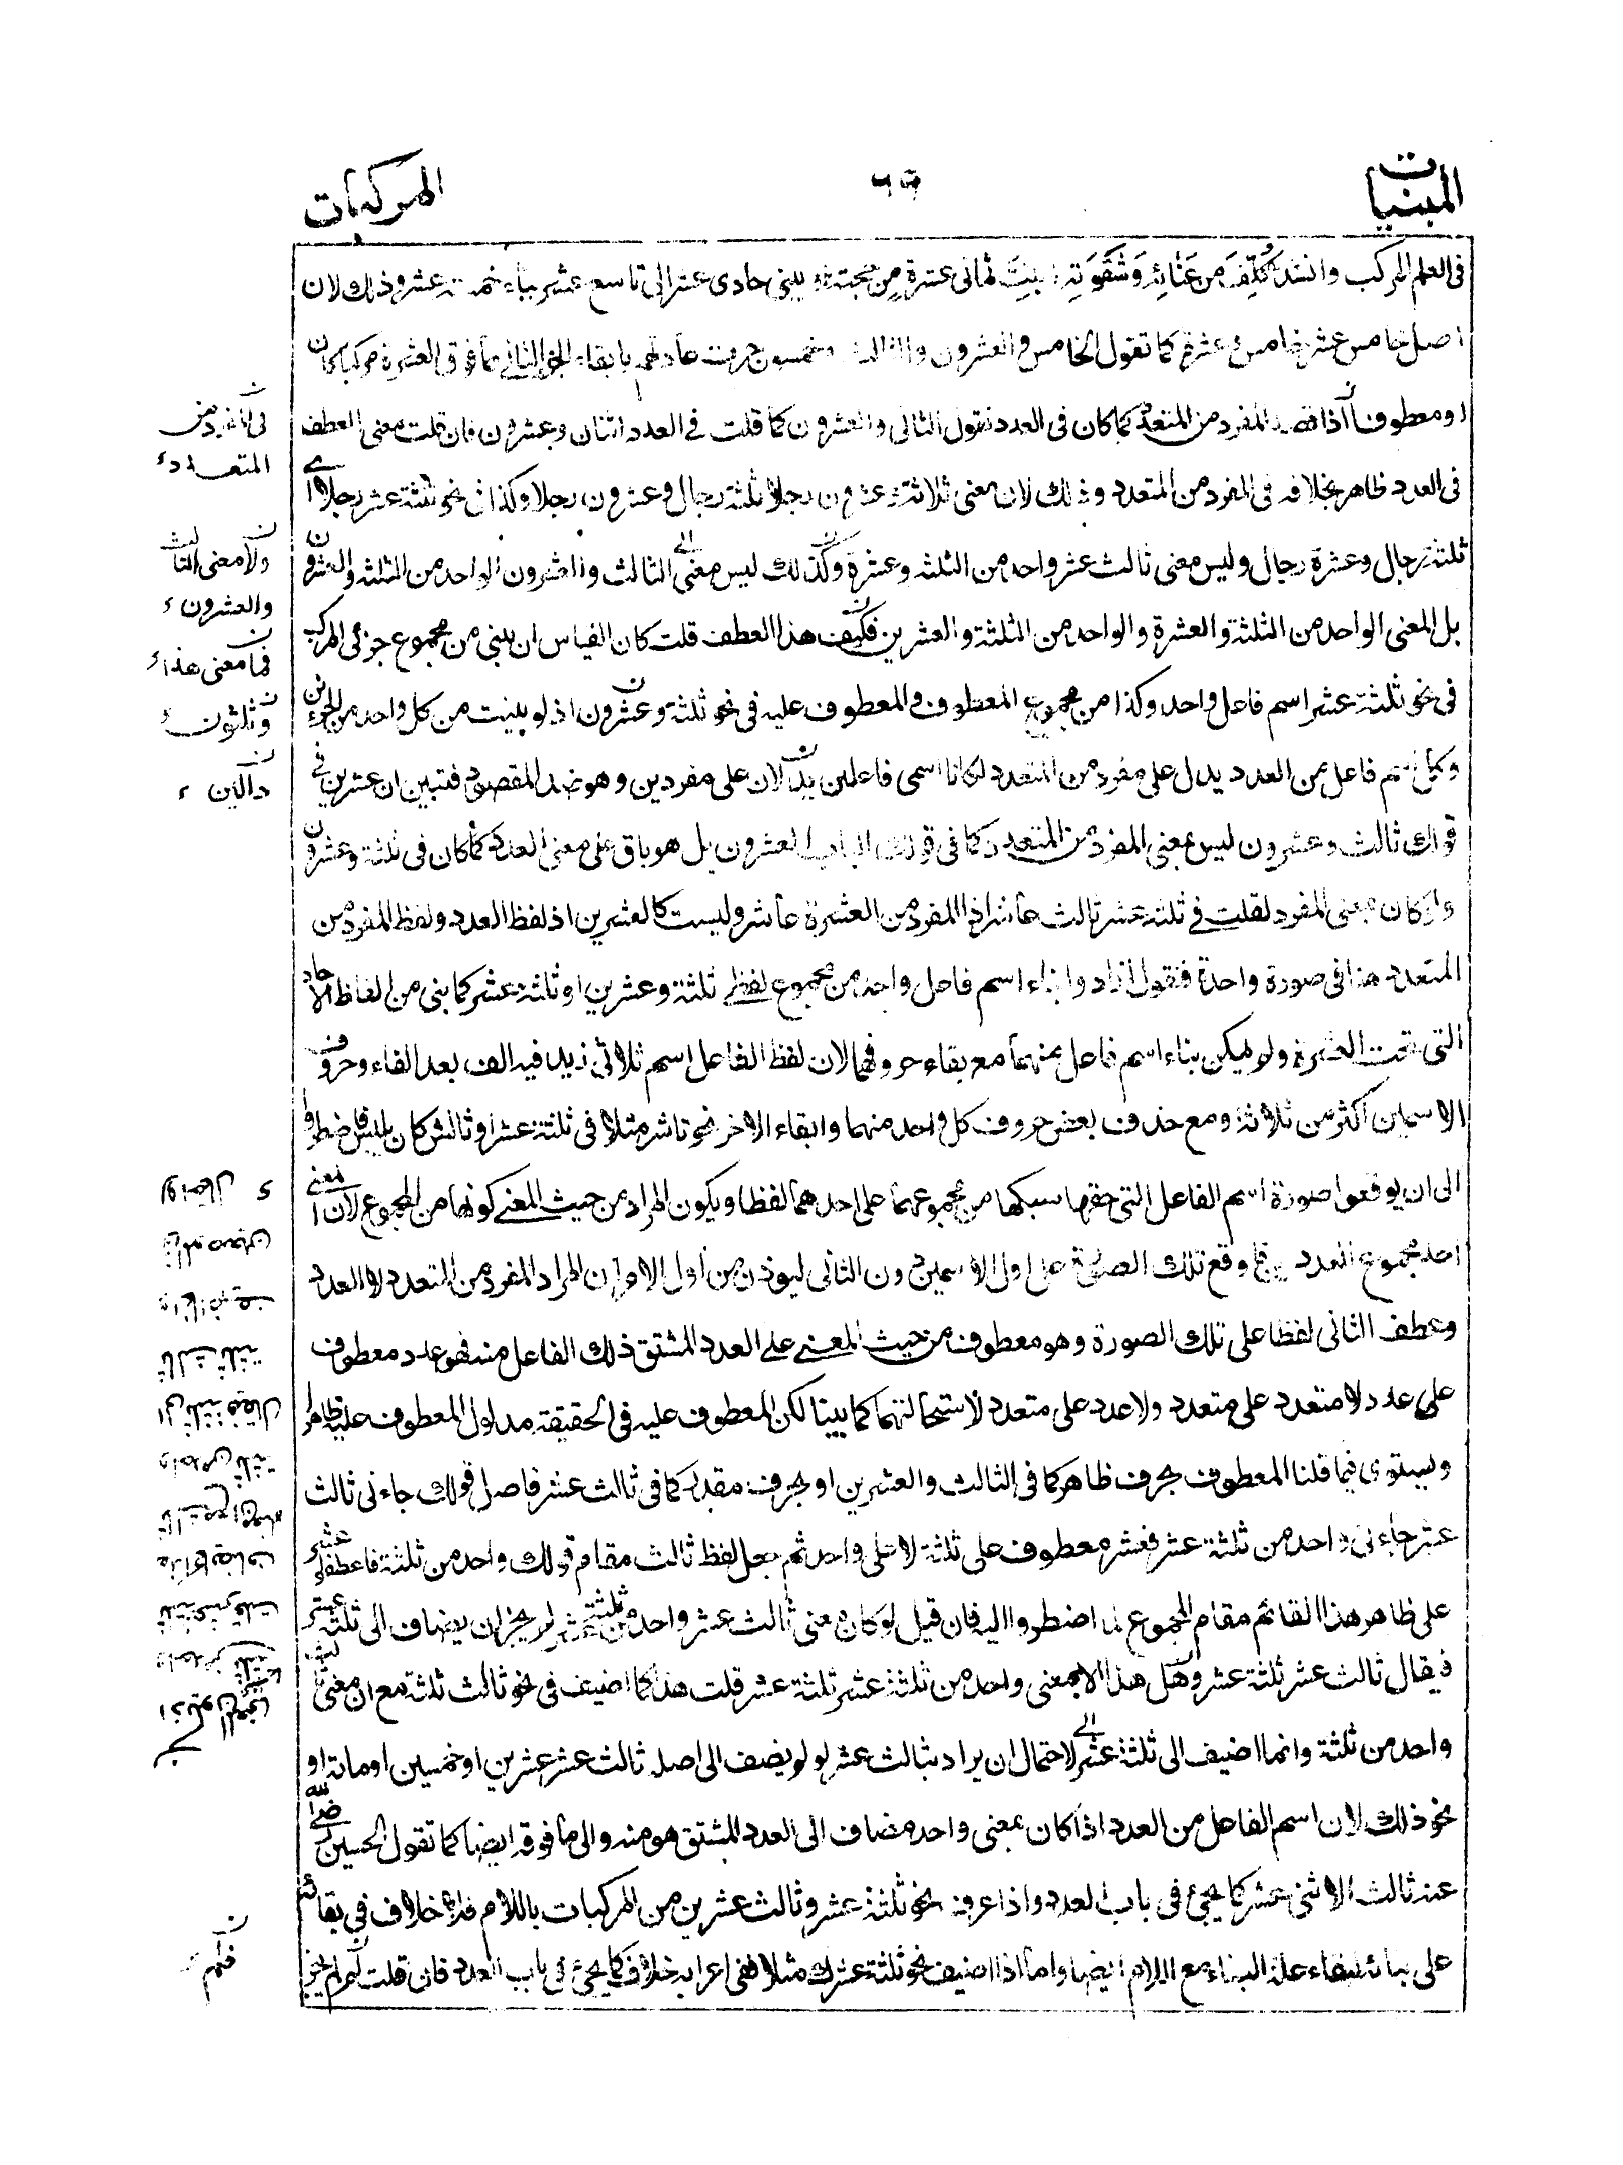 المبنيات
٦٩
المركبات
فى العلم المركب وانشد كُلِّفَ مِن عَنَائِه وَشَقْوَتِه بنتَ ثمانى عشرةٍ مِن حجته ويبنى حادى عشر الى تاسع عشر بناء خمسة عشر وذلك لان
اصل خامس عشر خامس وعشرة كما تقول الخامس والعشرون والثالث وخمسون جرت عادتهم بابقاء الجزء الثانى مما فوق العشرة مركبا كان
او معطوفا اذا قصد المفرد من المتعدد كما كان فى العدد فتقول الثانى والعشرون كما قلت فى العدد اثنان وعشرون فان قلت معنى العطف
فى العدد ظاهر بخلافه فى المفرد من المتعدد وذلك لان معنى ثلاثة وعشرون رجلا ثلثة رجال وعشرون رجلا وكذا فى نحو ثلثة عشر رجلا اى
ثلثة رجال وعشرة رجال وليس معنى ثالث عشر واحد من الثلثه وعشرة وكذلك ليس معنى الثالث والعشرون الواحد من الثلثه والعشرون
بل المعنى الواحد من الثلثة والعشرة والواحد من الثلثة والعشرين فكيف هذا العطف قلت كان القياس ان يبنى من مجموع جزئى المركب
فى نحو ثلثة عشر اسم فاعل واحد وكذا من مجموع المعطوف والمعطوف عليه فى نحو ثلثة وعشرون اذ لو بنيت من كل واحد من الجزئين
وكل اسم فاعل من العدد يدل على مفرد من المتعدد لكانا اسمى فاعلين يدلان على مفردين وهو ضد المقصود فتبين ان عشرين فى
قولك ثالث وعشرون ليس بمعنى المفرد من المتعدد كما فى قولك الباب العشرون بل هو باق على معنى العدد كما كان فى ثلثة وعشرون
ولو كان بمعنى المفرد لقلت فى ثلثة عشر ثالث عاشر اذ المفرد من العشرة عاشر وليست كالعشرين اذ لفظ العدد ولفظ المفرد من
المتعدد هنا فى صورة واحدة فنقول ارادوا بناء اسم فاعل واحد من مجموع لفظى ثلثة وعشرين او ثلثة عشر كما بنى من الفاظ الاحاد
التى تحت العشرة ولم يمكن بناء اسم فاعل منهما مع بقاء حروفهما لان لفظ الفاعل اسم ثلاثى زيد فيه الف بعد الفاء وحروف
الاسمين اكثر من ثلاثة ومع حذف بعض حروف كل واحد منهما وابقاء الاخر نحو ثاشر مثلا فى ثلثة عشر او ثالش كان يلبس فاضطروا
الى ان يوقعوا صورة اسم الفاعل التى حقها سبكها من مجموعهما على احدهما لفظا ويكون المراد من حيث المعنى كونها من المجموع لان المعنى
احد مجموع العدد وقع تلك الصورة على اول الاسمين دون الثانى ليوذن من اول الامر ان المراد المفرد من المتعدد لا العدد
وعطف الثانى لفظا على تلك الصورة وهو معطوف من حيث المعنى على العدد المشتق ذلك الفاعل منه فهو عدد معطوف
على عدد لا متعدد على متعدد ولا عدد على متعدد لاستحالتهما كما بينا لكن المعطوف عليه فى الحقيقة مدلول المعطوف عليه ظاهرا
ويستوى فيما قلنا المعطوف بحرف ظاهر كما فى الثالث والعشرين او بحرف مقدر كما فى ثالث عشر فاصل قولك جاءنى ثالث
عشر جاءنى واحد من ثلثة عشر فعشر معطوف على ثلثة لا على واحد ثم جعل لفظ ثالث مقام قولك واحد من ثلثة فاعطف عشر
على ظاهر هذا القائم مقام المجموع لما اضطروا اليه فان قيل لو كان معنى ثالث عشر واحد من ثلثة عشر لم يجز ان يضاف الى ثلثة عشر
فيقال ثالث عشر ثلثة عشر وهل هذا الا بمعنى واحد من ثلثة عشر ثلثة عشر قلت هذا كما اضيف فى نحو ثالث ثلثة مع ان معنى ثالث
واحد من ثلثة وانما اضيف الى ثلثة عشر لاحتمال ان يراد بثالث عشر لو لم يضف الى اصله ثالث عشر عشرين او خمسين او مائة او
نحو ذلك لان اسم الفاعل من العدد اذا كان بمعنى واحد مضاف الى العدد المشتق هو منه والى ما فوقه ايضا كما تقول الحسين رضى الله
عنه ثالث الاثنى عشر كما يجئ فى باب العدد واذا عرف نحو ثلثة عشر وثالث عشرين من المركبات باللام فلا خلاف فى بقائه
على بنائه لبقاء علة البناء مع اللام ايضا واما اذا اضيف نحو ثلثة عشرك مثلا ففى اعرابه خلاف كما يجئ فى باب العدد فان قلت لم لم يجز
المتعدد
ولا معنى الثالث
والعشرون
فما معنى هذا
وثلثون
دالين